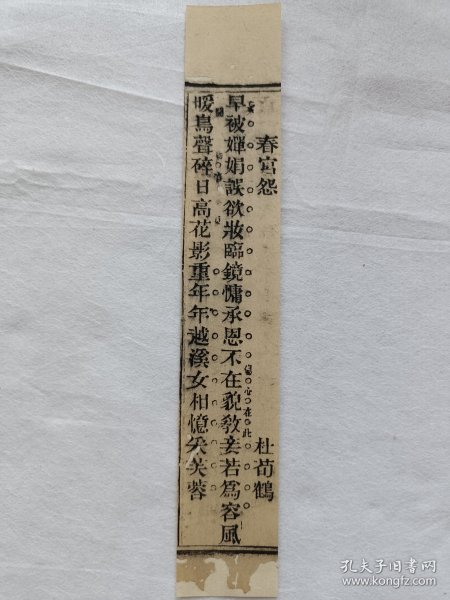 春宮怨 杜荀鶴
早被嬋娟誤欲妝臨鏡慵承恩不在貌教妾若為容風
傷心在此
暖鳥聲碎日高花影重年年越溪女相憶采芙蓉
孔夫子旧书网
www.kongfz.com